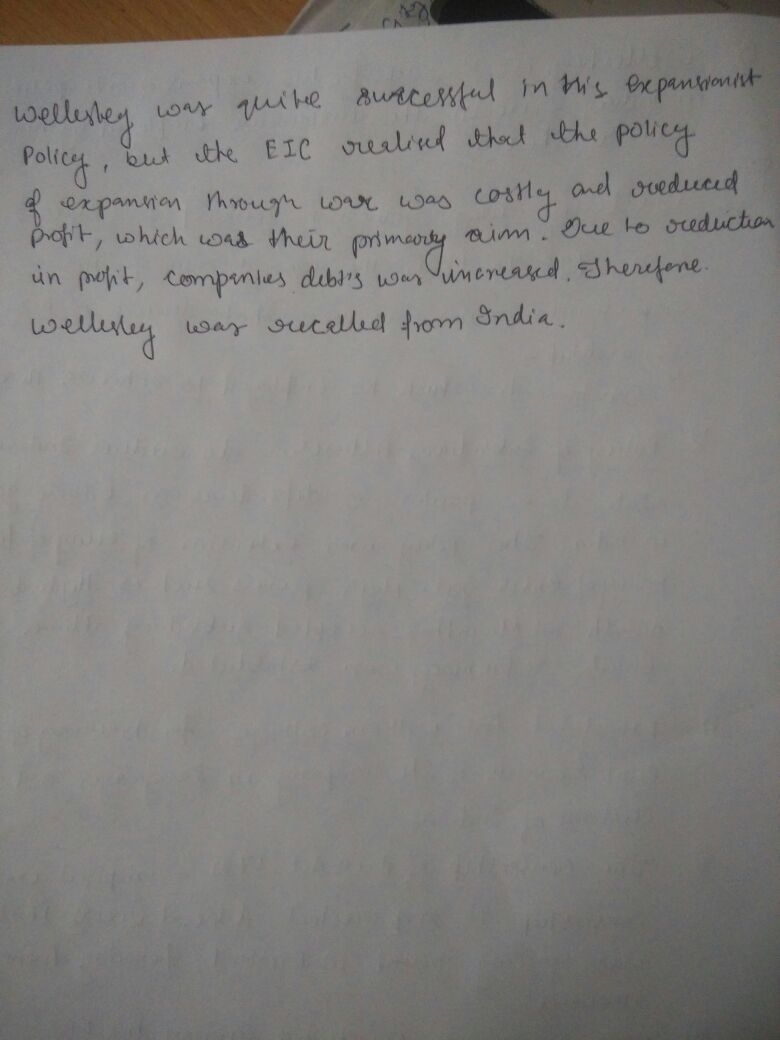 Wellesley was quite successful in this expansionist
Policy, but the EIC realised that the policy
of expansion through war was costly and reduced
profit, which was their primary aim. Due to reduction
in profit, companies debt's was increased. Therefore
Wellesley was recalled from India.